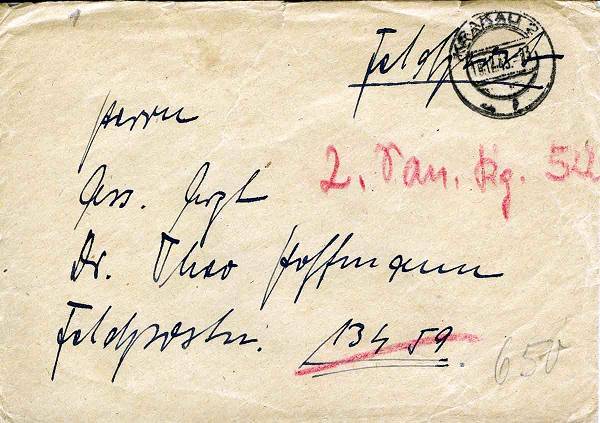 Feldpost
KRAKAU 2
Herrn
Ass. Arzt
2. San. Kg. 522
Dr. Theo Hoffmann
Feldpostn. 13459
650